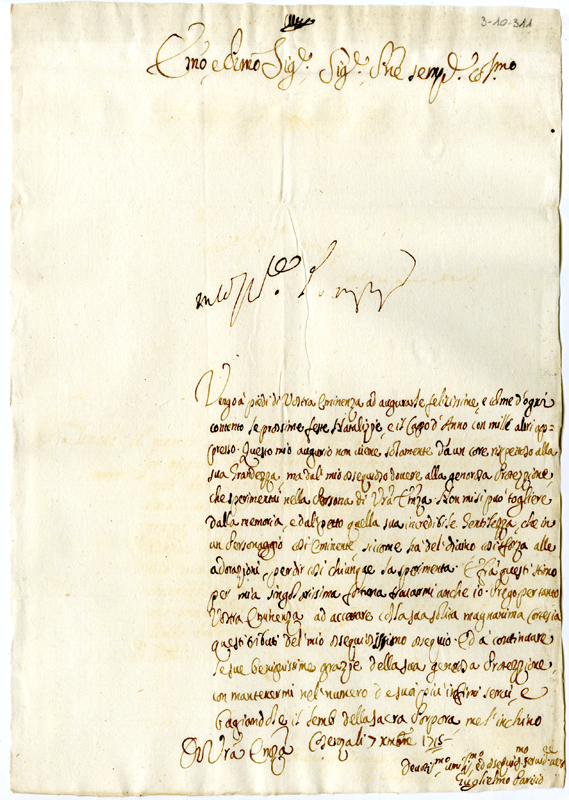 3-10-311
Emo e Rmo Sig.r Sig.r Pne semp.e Col.mo
Vengo à piedi di Vostra Eminenza ad augurarle felicissime, e colme d'ogni
contento le prossime feste Natalizie, e il Capo d'Anno con mille altri ap=
presso. Questo mio augurio non viene solamente da un core rispettoso alla
sua Grandezza, ma dal mio ossequioso dovere alla generosa Protezzione
che sperimentai nella Persona di Vra Emza. Non mi si può togliere
dalla memoria, e dal petto quella sua incredibile Gentilezza, che in
un Personaggio così Eminente, siccome hà del divino così sforza alle
adorazioni, per dir così chiunque la sperimenta. E frà questi stimo
per mia singolarissima fortuna trovarmi anche io. Prego pertanto
Vostra Eminenza ad accettare colla sua solita magnanima cortesia
questi tributi del mio ossequiosissimo ossequio. Ed à continuare
le sue benignissime grazie della sua generosa Protezzione,
con mantenermi nel numero de suoi più infimi servi, e
bagiandole il lembo della sacra Porpora me l'inchino
Di Vra Emza Berszali 7 Xmbre 1715
Devotis.mo Umil.mo ed ossequios.mo servid.re vero
Guglielmo Parisio